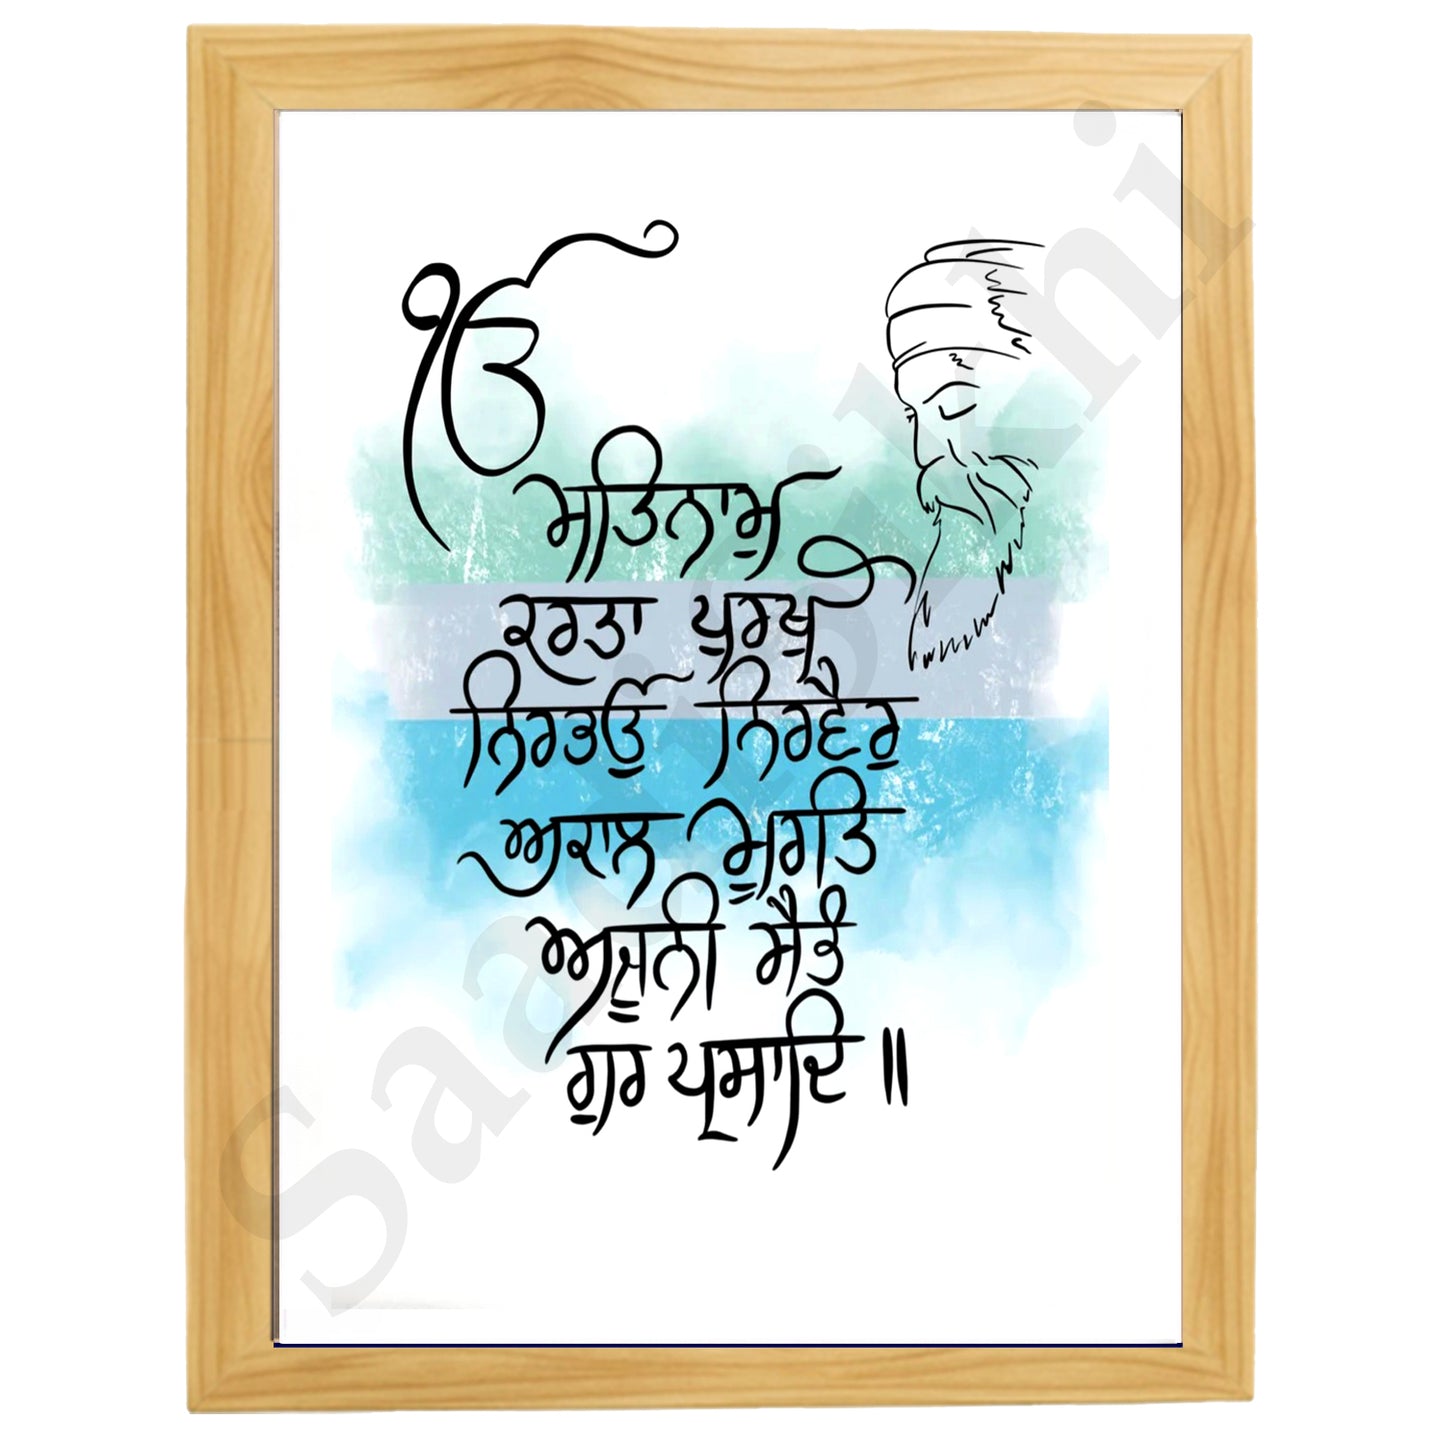 ੴ
ਸਤਿਨਾਮੁ
ਕਰਤਾ ਪੁਰਖੁ
ਨਿਰਭਉ ਨਿਰਵੈਰੁ
ਅਕਾਲ ਮੂਰਤਿ
ਅਜੂਨੀ ਸੈਭੰ
ਗੁਰ ਪ੍ਰਸਾਦਿ ॥
Saadi Sikhi